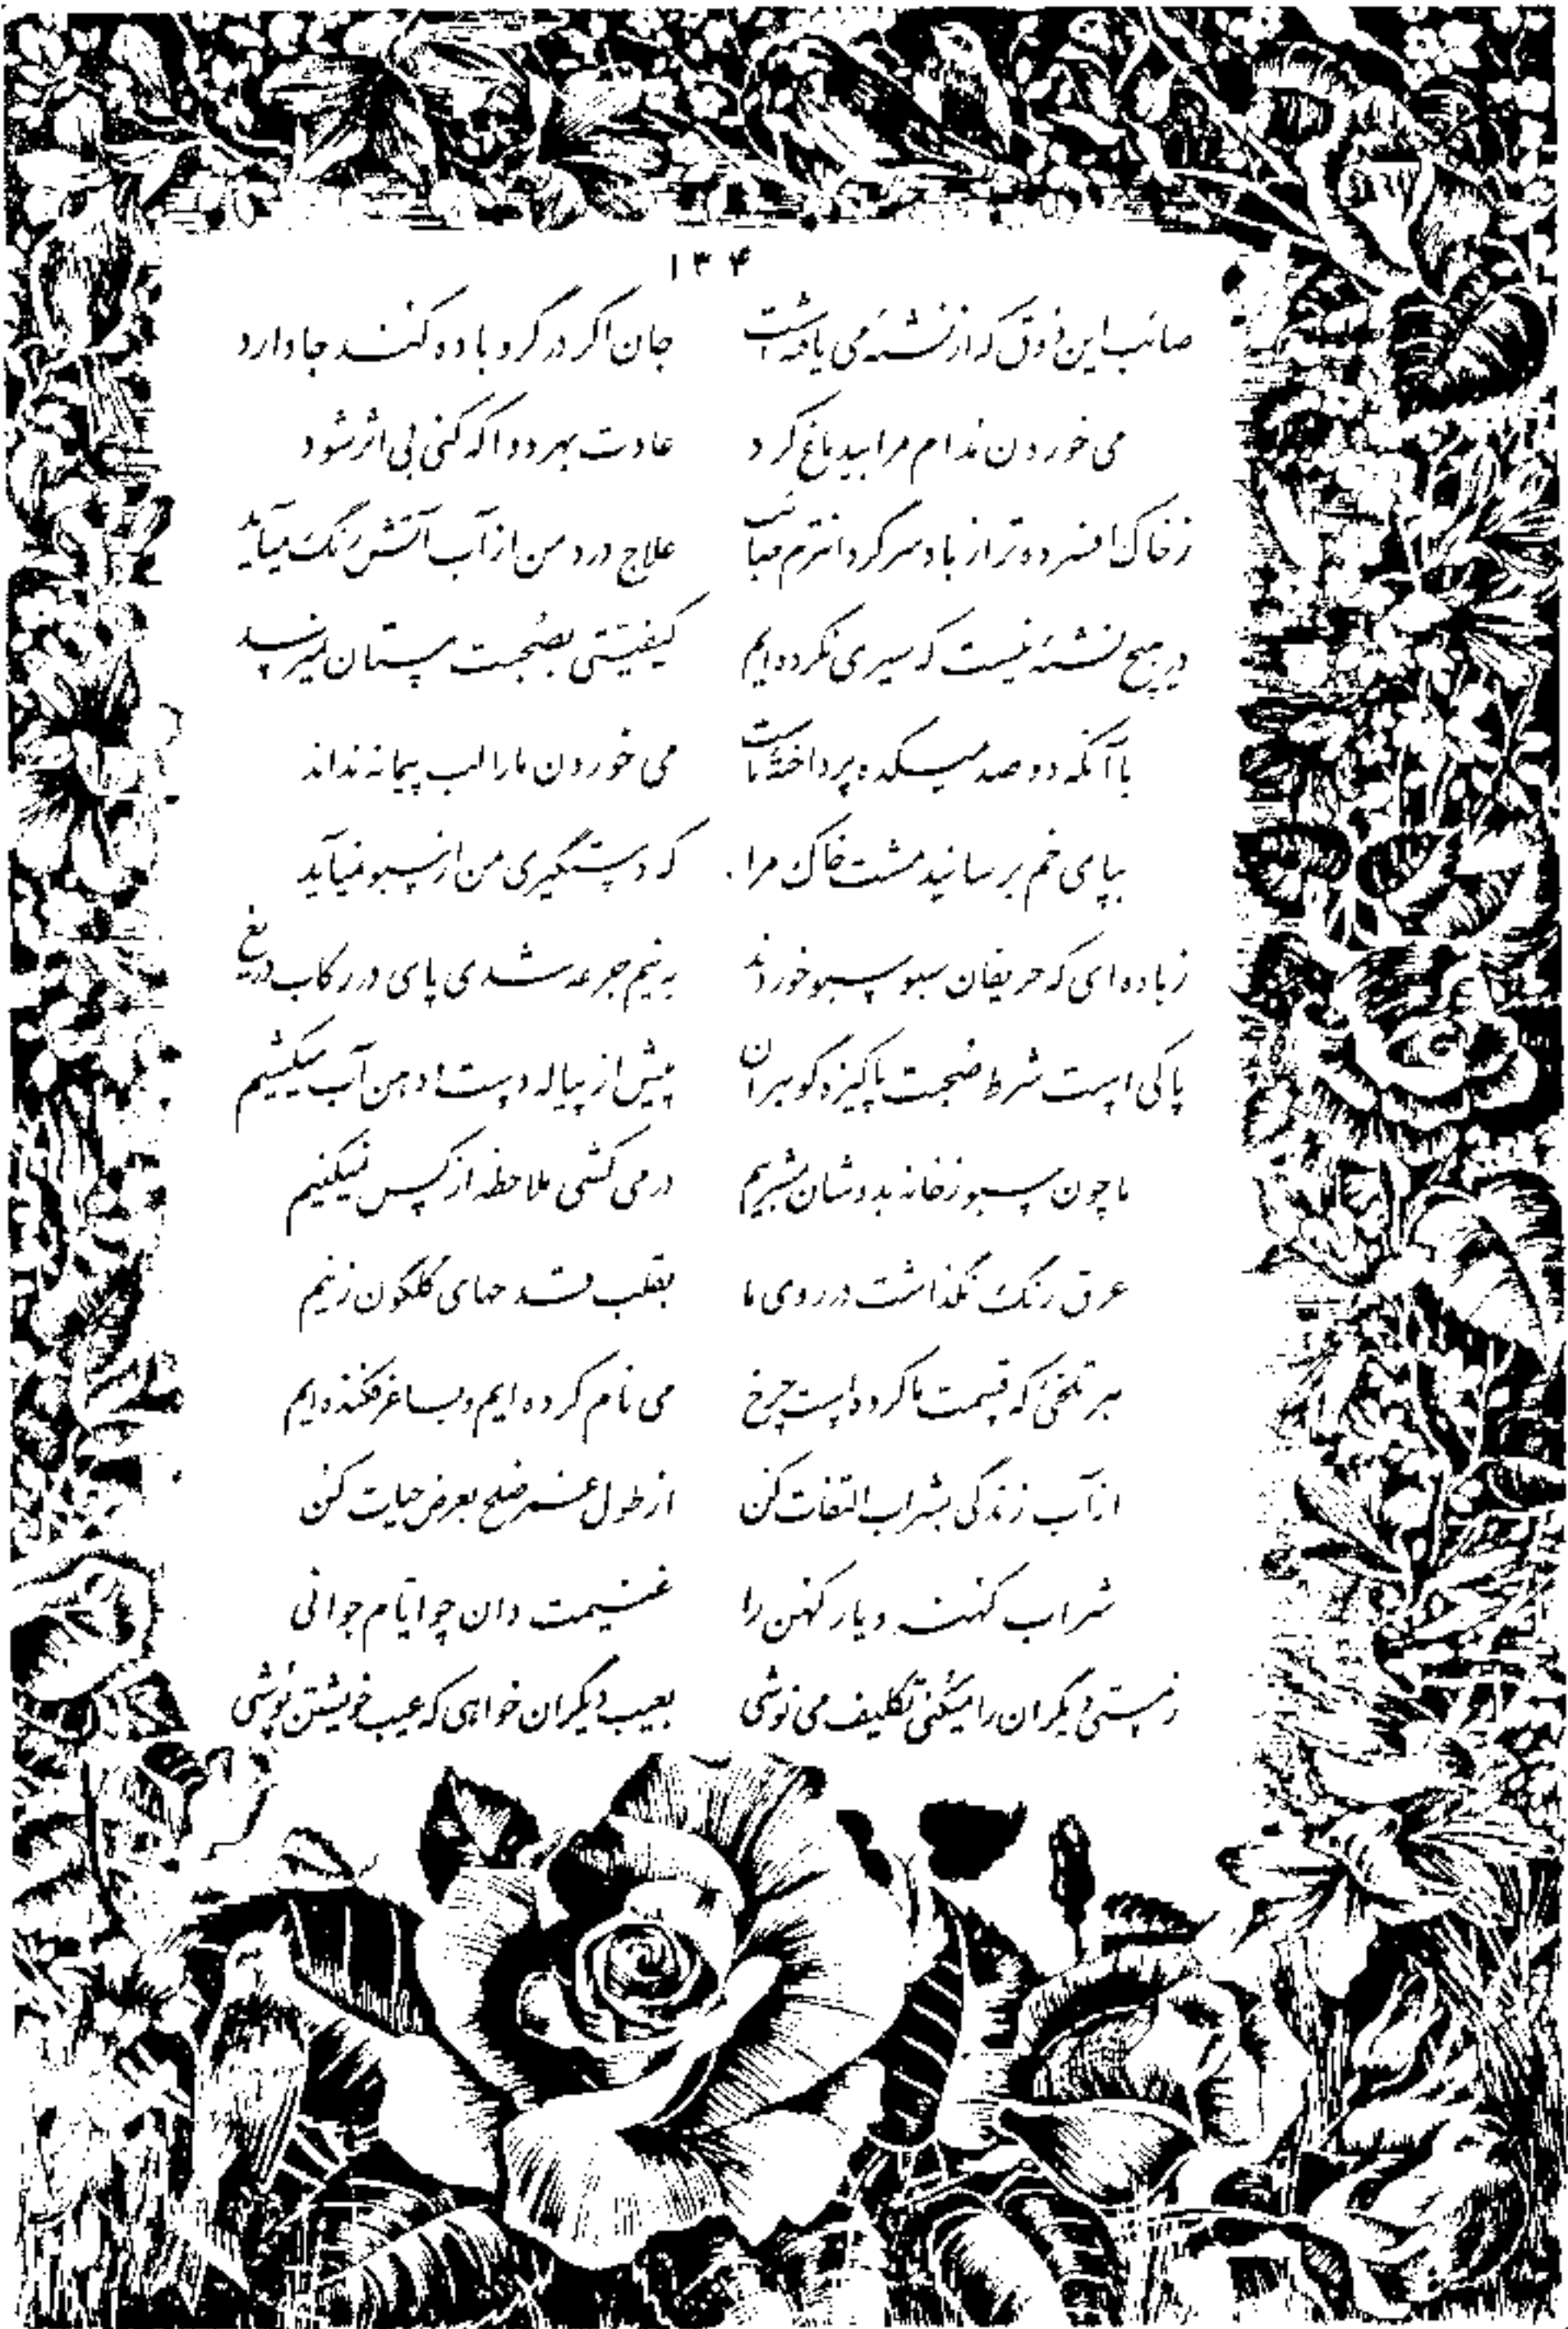 ۱۳۴
صائب این ذوق که از نشئهٔ می یافته است جان اگر در گرو باده کند جا دارد
می خوردن مدام مرا بیدماغ کرد عادت بهر دوا که کنی بی اثر شود
ز خاک افسرده تر از باد سرگردانترم صائب علاج درد من از آب آتش رنگ میآید
در هیچ نشئه نیست که سیری نکرده ایم کیفیتی بصحبت مستان نمیرسد
با آنکه دو صد میکده پرداختهٔ ماست می خوردن ما را لب پیمانه نداند
بپای خم برسانید مشت خاک مرا که دستگیری من از سبو نمیآید
ز باده ای که حریفان سبو سبو خوردند به نیم جرعه شدی پای در رکاب دریغ
پاکی است شرط صحبت پاکیزه گوهران پیش از پیاله دست و دهن آب میکشیم
ما چون سبو ز خانه بدوشان مشربیم در می کشی ملاحظه از کس نمیکنیم
عرق رنگ نگذاشت در روی ما بقلب قدحهای گلگون زنیم
هر تلخی که قسمت ما کرده است چرخ می نام کرده ایم و بساغر فکنده ایم
از آب زندگی بشراب التفات کن از طول عمر صلح بعرض حیات کن
شراب کهنه و یار کهن را غنیمت دان چو ایام جوانی
ز مستی دیگران را میکنی تکلیف می نوشی بعیب دیگران خواهی که عیب خویشتن پوشی